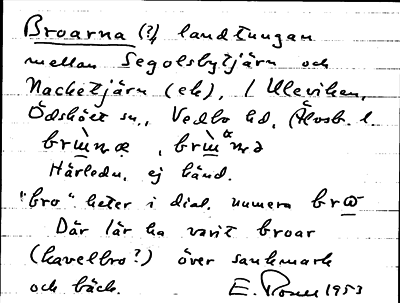 Broarna (?), landtungan
mellan Segolsbytjärn och
Nacketjärn (ek), / Uleviken,
Ödskölt sn., Vedbo hd, Älvsb. l.
Härledn. ej känd.
"bro" heter i dial. numera
Där lär ha varit broar
(kavelbro?) över sankmark
och bäck. E. 1953